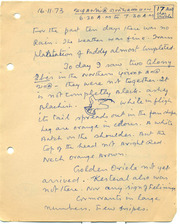 16-11-73
6-30 A.M to 7-30 A.M
For the past ten days there was no
Rain. The weather was fine. Trans
plantation of Paddy almost completed
To day I saw two
in the Northern
they were not together. It
is not completely black. ashy
Blackish. While in fligh
its tail spreads out in a fan shape
leg are orange in colour. A white
Patch on the shoulder. But the
top of the head not bright Red
Much orange brown.
Golden Oriole not yet
arrived. Kestrel also was
not there. Now any sightseeings
Cormorants in large
numbers. Few Snipes.